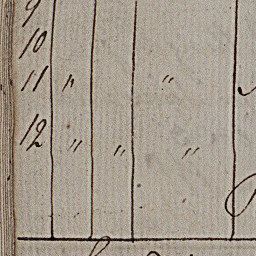 9
10
11 " "
12 " " "